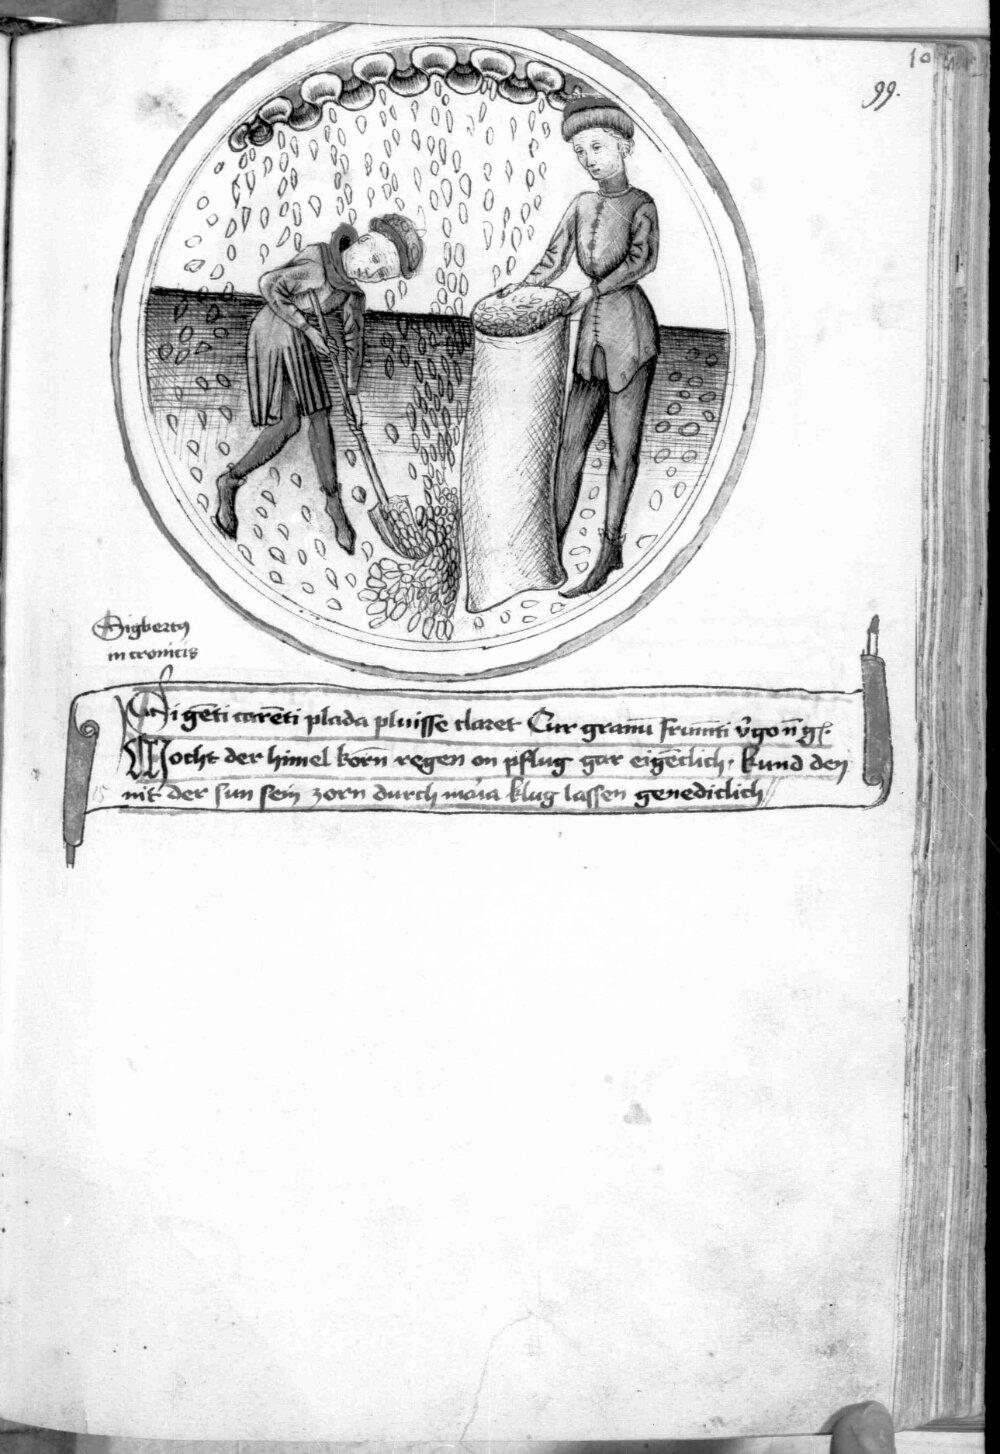 99.
Sigbertꝰ
in cronicis
Si gēti carēti plada pluisse claret Cur granū frumēti v̄go n̄ gͣ.
Mocht der himel korn regen on pflug gar eigētlich. Kund den
nit der sun sein zorn durch maria klug lassen genediclich